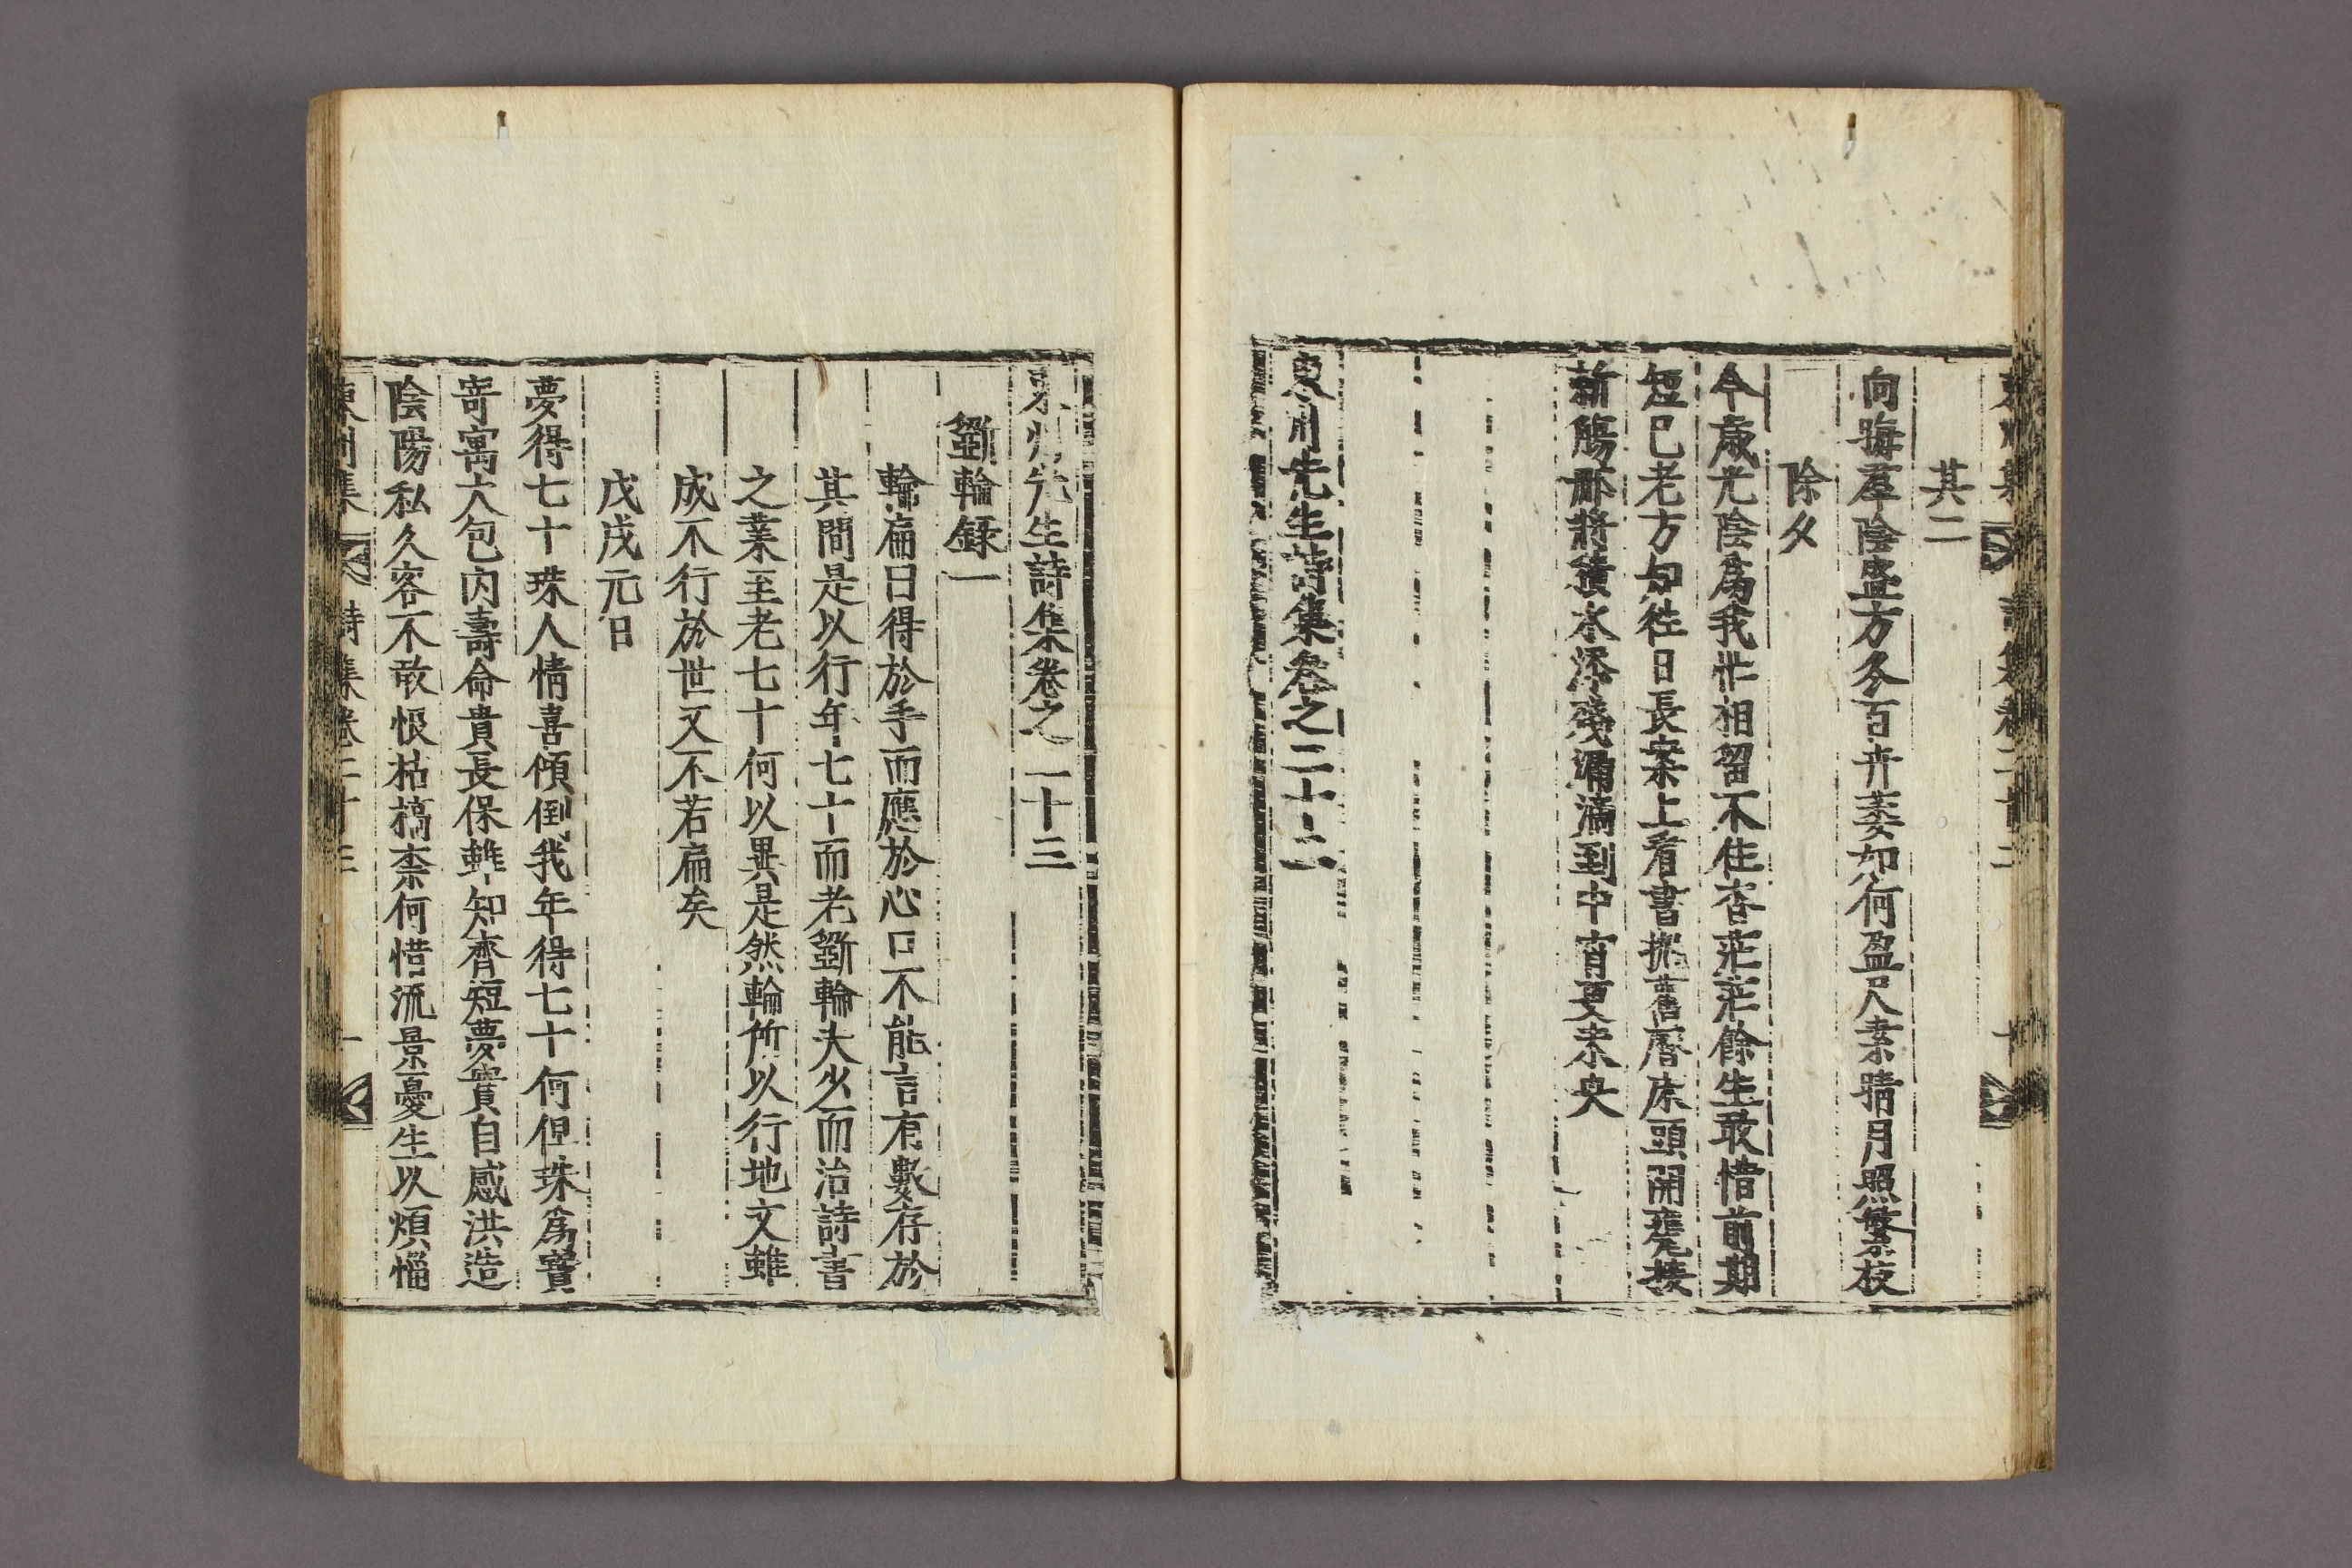 東州集 詩集卷二十二 十
其二
向晦羣陰盛方冬百卉萎如何盈尺素猶月照繁枝
除夕
今歲光陰爲我悲相留不住杳茫茫餘生敢惜前期
短已老方知往日長案上看書抛舊曆床頭開甕接
新觴那將積水添殘漏滴到中宵更未央
東州先生詩集卷之二十二
東州先生詩集卷之二十三
斲輪錄一
輪扁曰得於手而應於心口不能言有數存於
其間是以行年七十而老斲輪夫少而治詩書
之業至老七十何以異是然輪所以行地文雖
成不行於世又不若扁矣
戊戌元日
夢得七十珠人情喜傾倒我年得七十何但珠爲寶
寄寓大包內壽命貴長保雖知齊短夢實自感洪造
陰陽私久客不敢恨枯槁柰何惜流景憂生以煩惱
東州集 詩集卷二十三 一